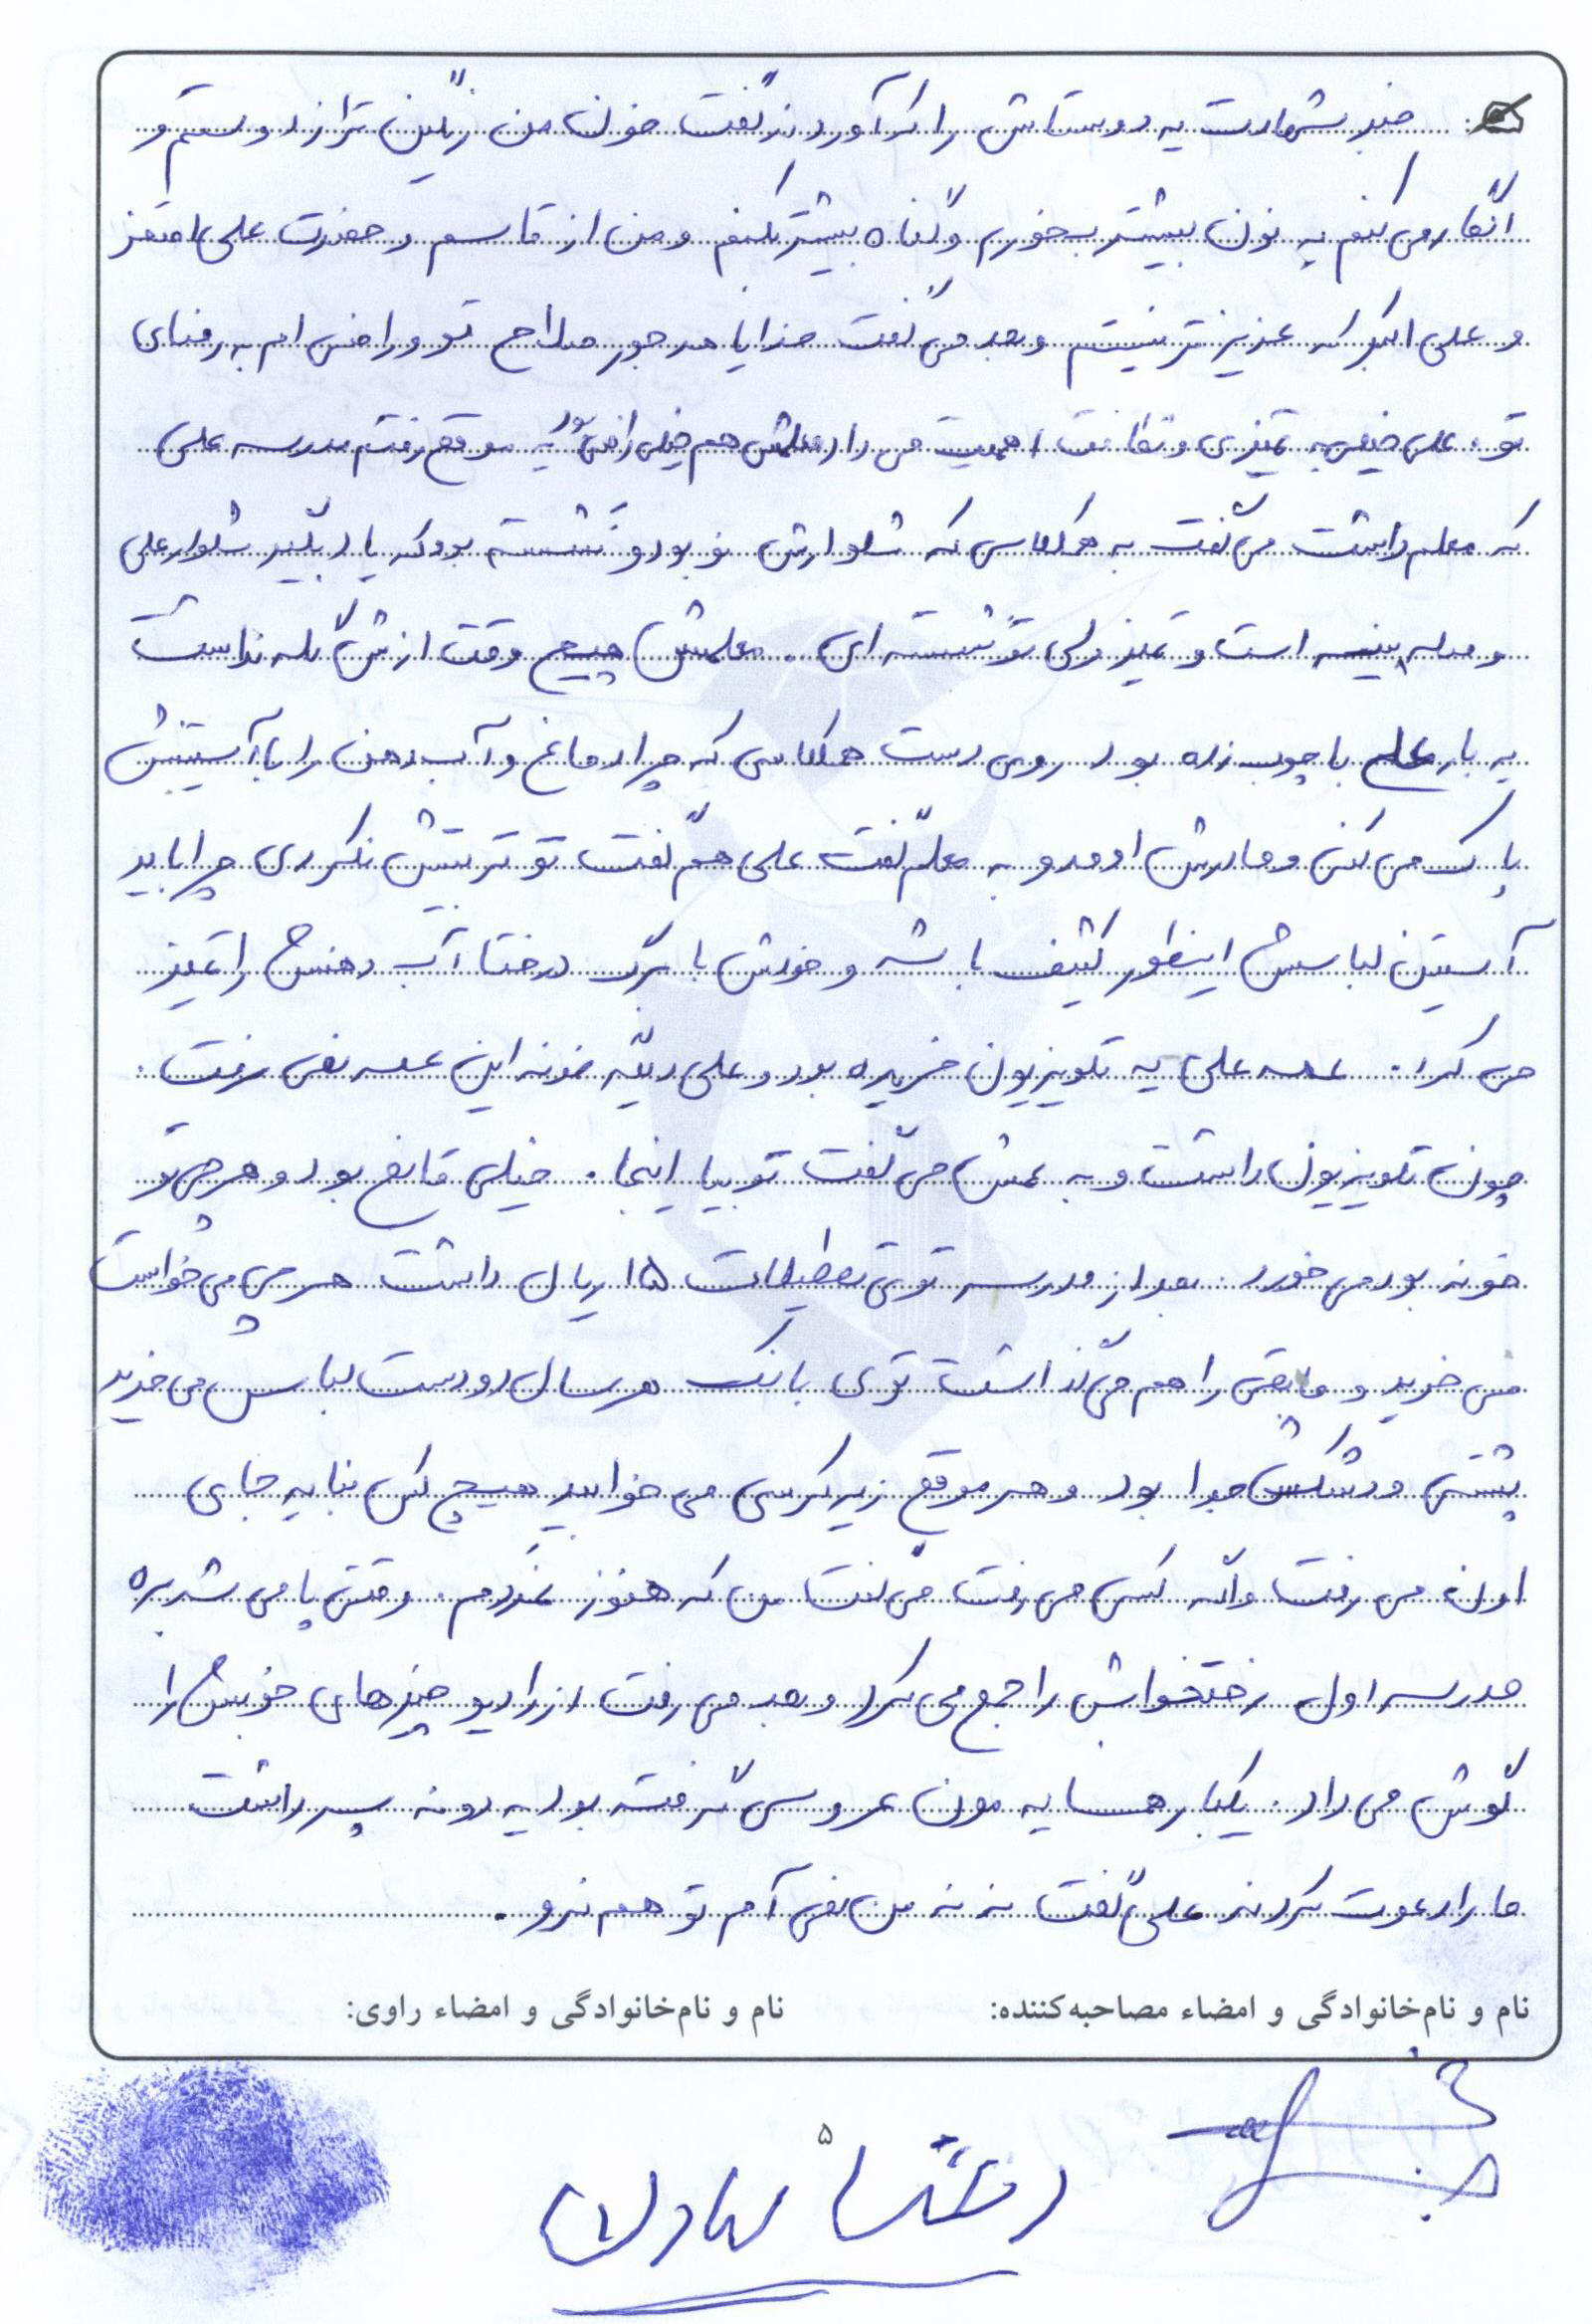 خبر شهادت یه دوستاش را که آوردند گفت خون من رنگین تر از دوستم و
انگار می کنم یه نون بیشتر بخورم و گناه بیشتر بکنم و من از قاسم و حضرت علی اصغر
و علی اکبر که عزیزتر نیستم و بعد می گفت خدایا هر جور صلاح تو و راضی ام به رضای
تو. علی خیلی به تمیزی و نظافت اهمیت می داد معلمش هم خیلی راضی بود یه موقع رفتم مدرسه علی
که معلم داشت می گفت به همکلاسی که شلوارش نو بود و نشسته بود که یاد بگیر شلوار علی
وصله پینه است و تمیز ولی تو نشسته ای. معلمش هیچ وقت ازش گله نداشت
یه بار معلم با چوب زده بود روی دست همکلاسی که چرا دماغ و آب دهن را با آستینش
پاک می کنی و مادرش اومد و به معلم گفت علی هم گفت تو تربیتش نکردی چرا باید
آستین لباسش اینطور کثیف باشه و خودش با برگ درختا آب دهنش را تمیز
می کرد. عمه علی یه تلویزیون خریده بود و علی دیگه خونه این عمه نمی رفت.
چون تلویزیون داشت و به عمش می گفت تو بیا اینجا. خیلی قانع بود و هر چی تو
خونه بود می خورد. بعد از مدرسه توی تعطیلات ۱۵ ریال داشت هر چی می خواست
می خرید و مابقی را هم می گذاشت توی بانک هر سال دو دست لباس می خرید
پشتی و تشکش جدا بود و هر موقع زیر کرسی می خوابید هیچ کس نباید جای
اون می رفت و اگه کسی می رفت می گفت من که هنوز نمردم. وقتی پا می شد بره
مدرسه اول رختخوابش را جمع می کرد و بعد می رفت از رادیو چیزهای خوبش را
گوش می داد. یکبار همسایه مون عروسی گرفته بود یه دونه پسر داشت
ما را دعوت کردند علی گفت ننه من نمی آم تو هم نرو.
نام و نام‌خانوادگی و امضاء مصاحبه‌کننده:
نام و نام‌خانوادگی و امضاء راوی:
۵